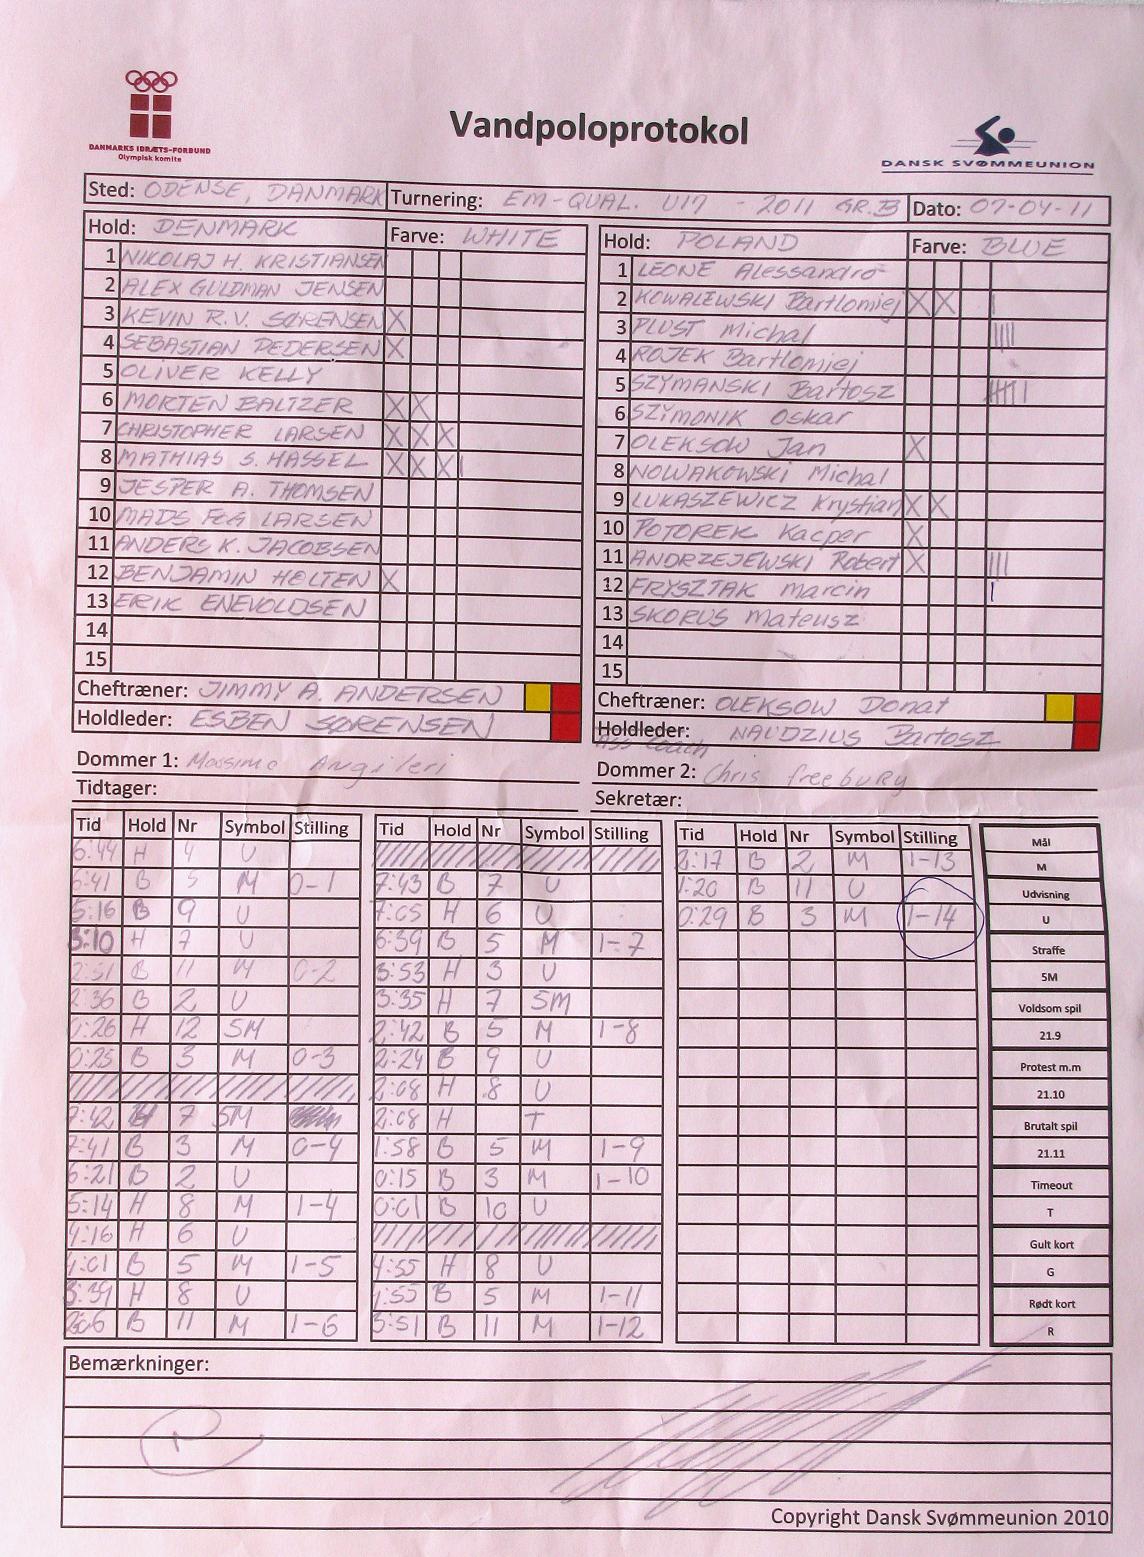 DANMARKS IDRÆTS-FORBUND
Olympisk komite
Vandpoloprotokol
DANSK SVØMMEUNION
Sted: ODENSE, DANMARK Turnering: EM-QUAL. U17 - 2011 GR.B Dato: 07-04-11
Hold: DENMARK Farve: WHITE
1 NIKOLAJ H. KRISTIANSEN
2 ALEX GULDMAN JENSEN
3 KEVIN R.V. SØRENSEN X
4 SEBASTIAN PEDERSEN X
5 OLIVER KELLY
6 MORTEN BALTZER X X
7 CHRISTOPHER LARSEN X X X
8 MATHIAS S. HASSEL X X X |
9 JESPER A. THOMSEN
10 MADS FOG LARSEN
11 ANDERS K. JACOBSEN
12 BENJAMIN HOLTEN X
13 ERIK ENEVOLDSEN
14
15
Cheftræner: JIMMY A. ANDERSEN
Holdleder: ESBEN SØRENSEN
Hold: POLAND Farve: BLUE
1 LEONE Alessandro
2 KOWALEWSKI Bartlomiej X X |
3 PLUST Michal ||||
4 ROJEK Bartlomiej
5 SZYMANSKI Bartosz
6 SZYMONIK Oskar
7 OLEKSOW Jan X
8 NOWAKOWSKI Michal
9 LUKASZEWICZ Krystian X X
10 POTOREK Kacper X
11 ANDRZEJEWSKI Robert X |||
12 FRYSZTAK Marcin |
13 SKORUS Mateusz
14
15
Cheftræner: OLEKSOW Donat
Holdleder: NAUDZIUS Bartosz
Ass coach
Dommer 1: Massimo Angileri
Dommer 2: Chris freebury
Tidtager:
Sekretær:
Tid Hold Nr Symbol Stilling
6:44 H 4 U
6:41 B 5 M 0-1
5:16 B 9 U
3:10 H 7 U
2:51 B 11 M 0-2
2:36 B 2 U
0:26 H 12 5M
0:25 B 3 M 0-3
7:42 H 7 5M
7:41 B 3 M 0-4
6:21 B 2 U
5:14 H 8 M 1-4
4:16 H 6 U
4:01 B 5 M 1-5
3:39 H 8 U
B 11 M 1-6
Tid Hold Nr Symbol Stilling
7:43 B 7 U
7:05 H 6 U
6:39 B 5 M 1-7
3:53 H 3 U
3:35 H 7 5M
2:42 B 5 M 1-8
2:24 B 9 U
2:08 H 8 U
2:08 H T
1:58 B 5 M 1-9
0:15 B 3 M 1-10
0:01 B 10 U
4:55 H 8 U
B 5 M 1-11
3:51 B 11 M 1-12
Tid Hold Nr Symbol Stilling
3:17 B 2 M 1-13
1:20 B 11 U
0:29 B 3 M 1-14
Mål
M
Udvisning
U
Straffe
5M
Voldsom spil
21.9
Protest m.m
21.10
Brutalt spil
21.11
Timeout
T
Gult kort
G
Rødt kort
R
Bemærkninger:
Copyright Dansk Svømmeunion 2010